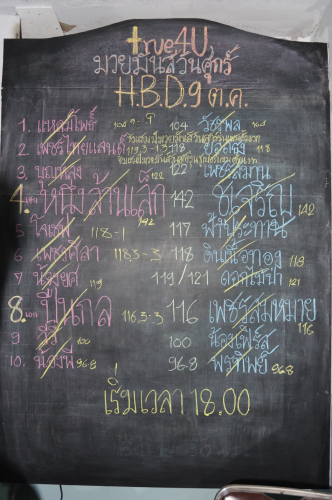 true4U
มวยมันส์วันศุกร์
H.B.D. 9 ต.ค.
1. แหลมโพธิ์ 104 วัชรพล
2. เพชรไทยแลนด์ 118
3. บุญหลง 122 เพชรสมาน
4. เอก หนึ่งล้านเล็ก 142 ช.เจริญ 142
5. 118-1 117 ฟ้าประทาน
6. เพชรศิลา 118,5-3 118 ดินเนื้อทอง 118
7. น้องยศ 119/121 ดอกไม้ป่า 121
8. เอก ปืนกล 116,3-3 116 เพชรสมหมาย 116
9. 100 100 น้องเฟิร์ส
10. น้องพี 96.8 96.8 พรทิพย์ 96.8
เริ่มเวลา 18.00